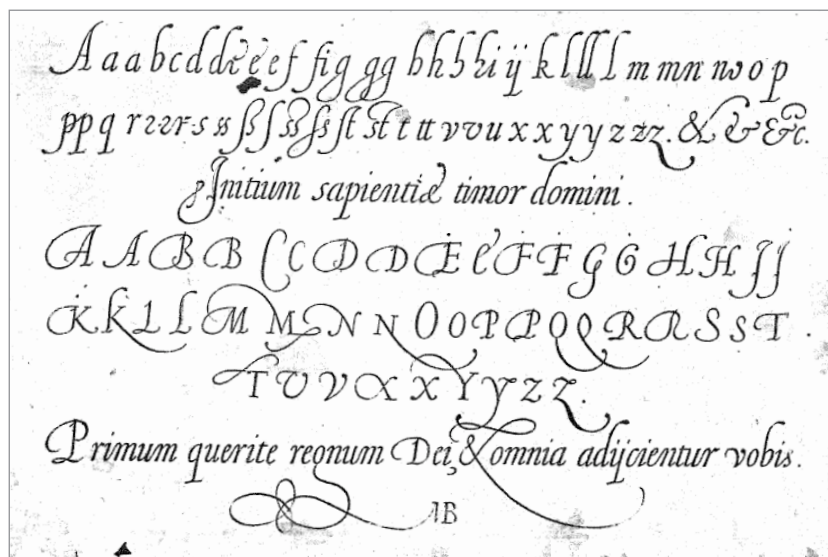 A a a b c d d e e e f fi g g g b h b h i ij k l l ll l m m n n w o p
p p q r r r r s s ss ß ſ ss ſs ſt st t tt v v u x x y y z z z. & & &c.
Initium sapientiæ timor domini.
A A B B C C D D E E F F G G H H J J
K K L L M M N N O O P P Q Q R R S S T .
T V V X X Y Y Z Z .
Primum querite regnum Dei, & omnia adijcientur vobis.
AB